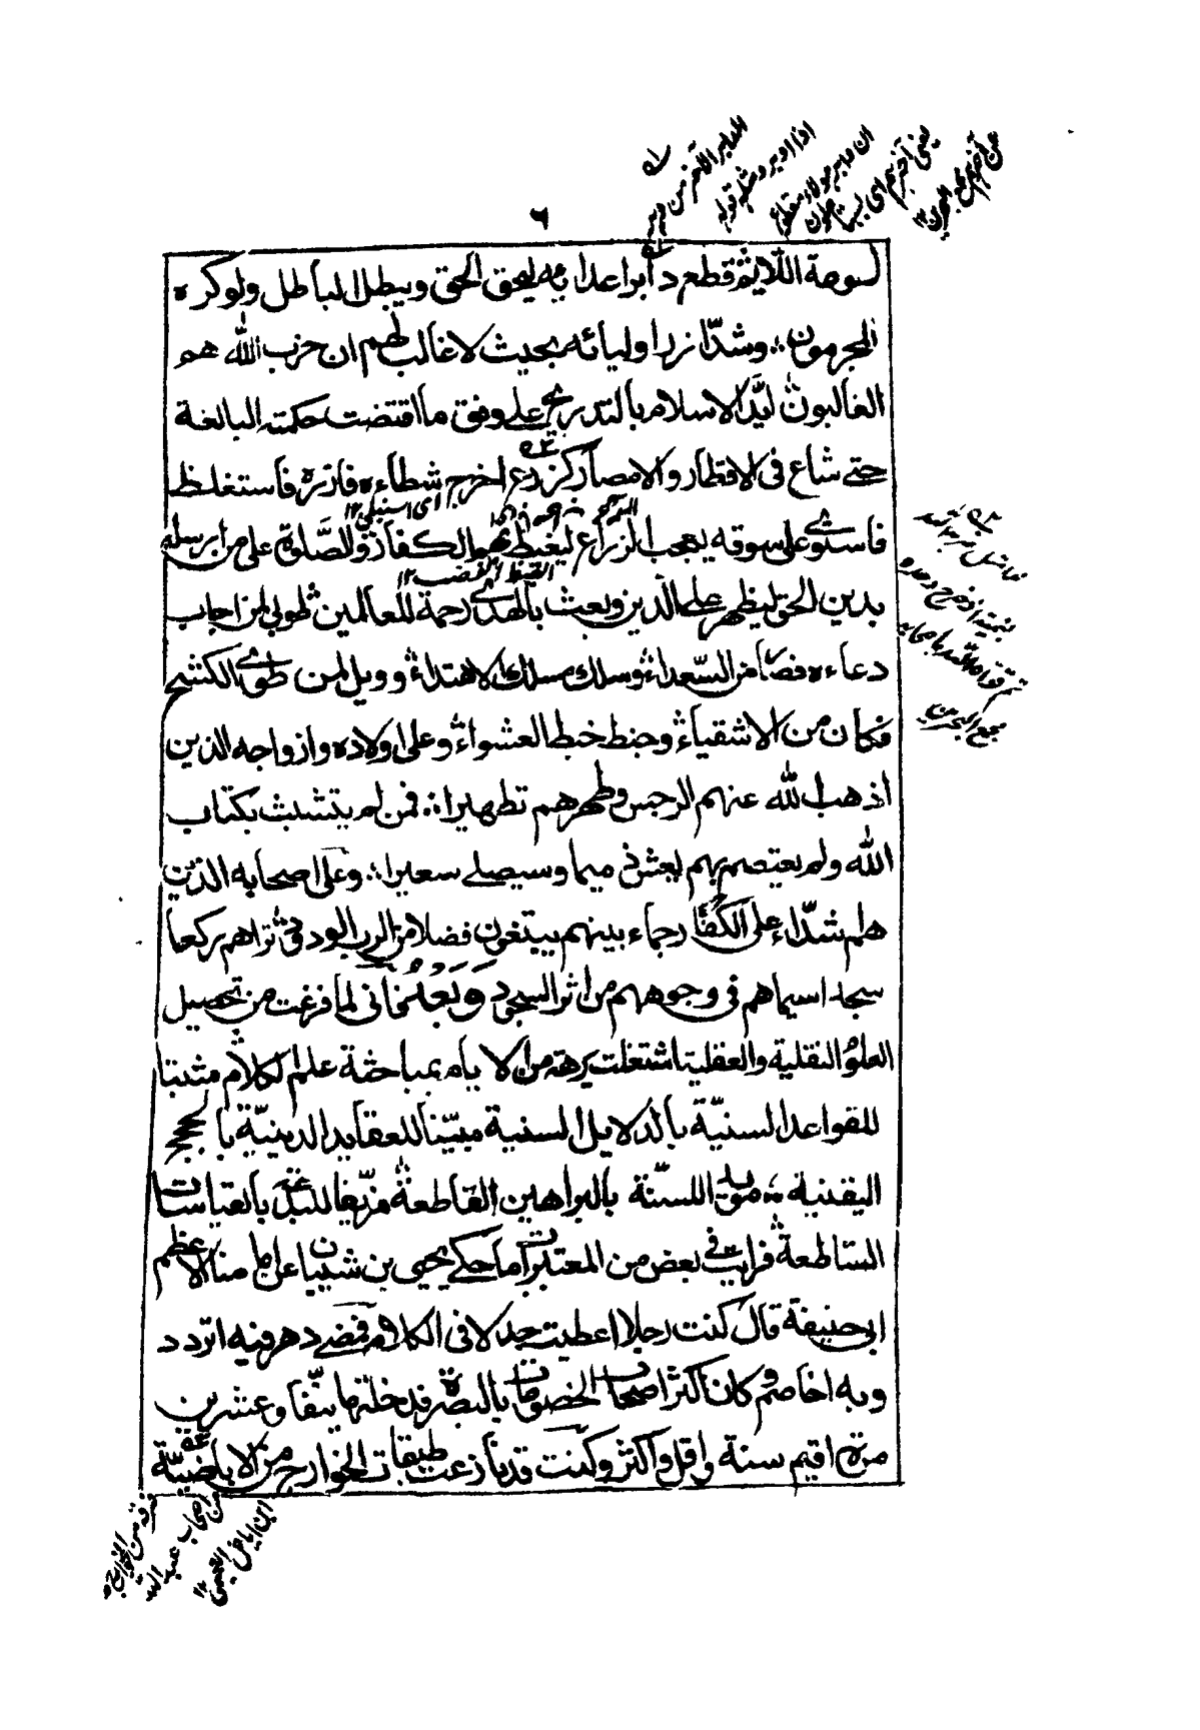 ٦
لومة اللائم فقطع دابر اعدائه ليحق الحق ويبطل الباطل ولو كره
المجرمون وشدّ ازر اوليائه بحيث لا غالب لهم ان حزب الله هم
الغالبون ايّد الاسلام بالتدريج على وفق ما اقتضت حكمته البالغة
حتى شاع فى الاقطار والامصار كزرع اخرج شطاءه فازره فاستغلظ
فاستوى على سوقه يعجب الزراع ليغيظ بهم الكفار والصّلوة على من ارسله
بدين الحق ليظهر على الدين وبعث بالهدى رحمة للعالمين طوبى لمن اجاب
دعاءه فصار من السّعداء وسلك مسلك الاهتداء وويل لمن طوى الكشح
فكان من الاشقياء وخبط خبط العشواء وعلى اولاده وازواجه الذين
اذهب الله عنهم الرجس وطهرهم تطهيرا فمن لم يتشبث بكتاب
الله ولم يعتصم بهم يعش ذميما وسيصلى سعيرا وعلى اصحابه الذين
هم اشدّاء على الكفّار رحماء بينهم يبتغون فضلا من الرب الودود تراهم ركعا
سجدا سيماهم فى وجوههم من اثر السجود وبعد فانى لما فرغت من تحصيل
العلوم النقلية والعقلية اشتغلت برهة من الايام بمباحثة علم الكلام مثبتا
للقواعد السنيّة بالدلايل السنية مبيّنا للعقايد الدينيّة با
اليقينية مويد اللسنّة بالبراهين القاطعة مزيّفا للبدعة بالقياسات
الساطعة فرايت فى بعض من المعتبرات ما حكى يحيى بن شيبان عن امامنا الاعظم
ابى حنيفة قال كنت رجلا اعطيت جدلا فى الكلام فمضى دهر فيه اتردد
وبه اخاصم وكان اكثر اصحاب الخصومات بالبصرة فدخلتها نيّفا وعشرين
مرة اقيم سنة واقل واكثر وكنت قد نازعت طبقات الخوارج من الاباضيّة
فرقة من الخوارج
من اصحاب عبد الله
ابن اباض التميمى ١٢